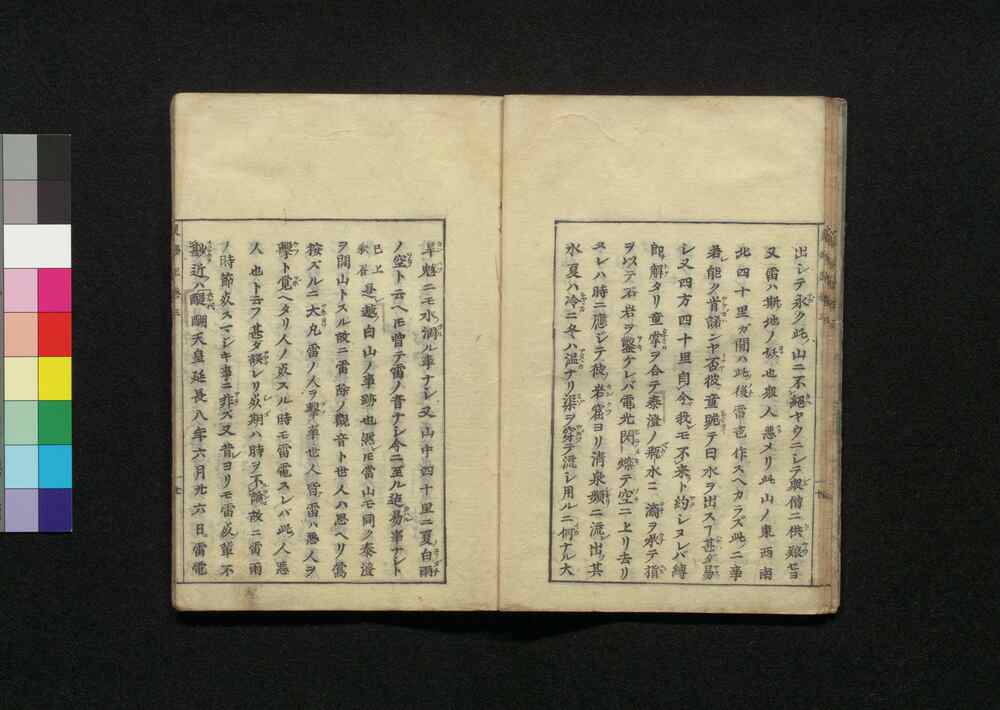 出シテ永ク此ノ山ニ不絕ヤウニシテ衆僧ニ供養セヨ
又雷ハ斯地ノ妖也衆人悪メリ此山ノ東西南
北四十里ガ間ハ此後雷電作スヘカラズ此ニ事
若能ク肯諾シヤ否彼童跪テ曰水ヲ出スフ甚タ易
シ又四方四十里自今我モ不來ト約シヌレバ縛
即解タリ童掌ヲ合テ泰澄ノ瓶水ニ滴ヲ承テ指
ヲ以テ石岩ヲ鑿ケレバ電光閃蟠テ空ニ上リ去リ
ヌレハ時ニ應シテ彼岩窟ヨリ清泉頻ニ流出ツ其
水夏ハ冷ニ冬ハ温ナリ渠ヲ穿テ流シ用ルニ何ナル大
旱魃ニモ水涸ル事ナシ又山中四十里ニ夏白雨
ノ空ト云ヘ𪜈曽テ雷ノ音ナシ今ニ至ル迠易事ナシト
已上是越白山ノ事跡也然𪜈當山モ同ク泰澄
ヲ開山トスル故ニ雷除ノ觀音ト世人ハ思ヘリ
按ズルニ大凡雷ノ人ヲ擊事世人皆雷ハ悪人ヲ
擊ト覚ヘタリ人ノ或スル時モ雷電スレバ此人悪
人也ト云フ甚タ誤レリ死期ハ時ヲ不識故ニ雷雨
ノ時節死スマジキ事ニ非ズ又昔ヨリモ雷死輩不
尠近ハ醍醐天皇延長八年六月廿六日雷電